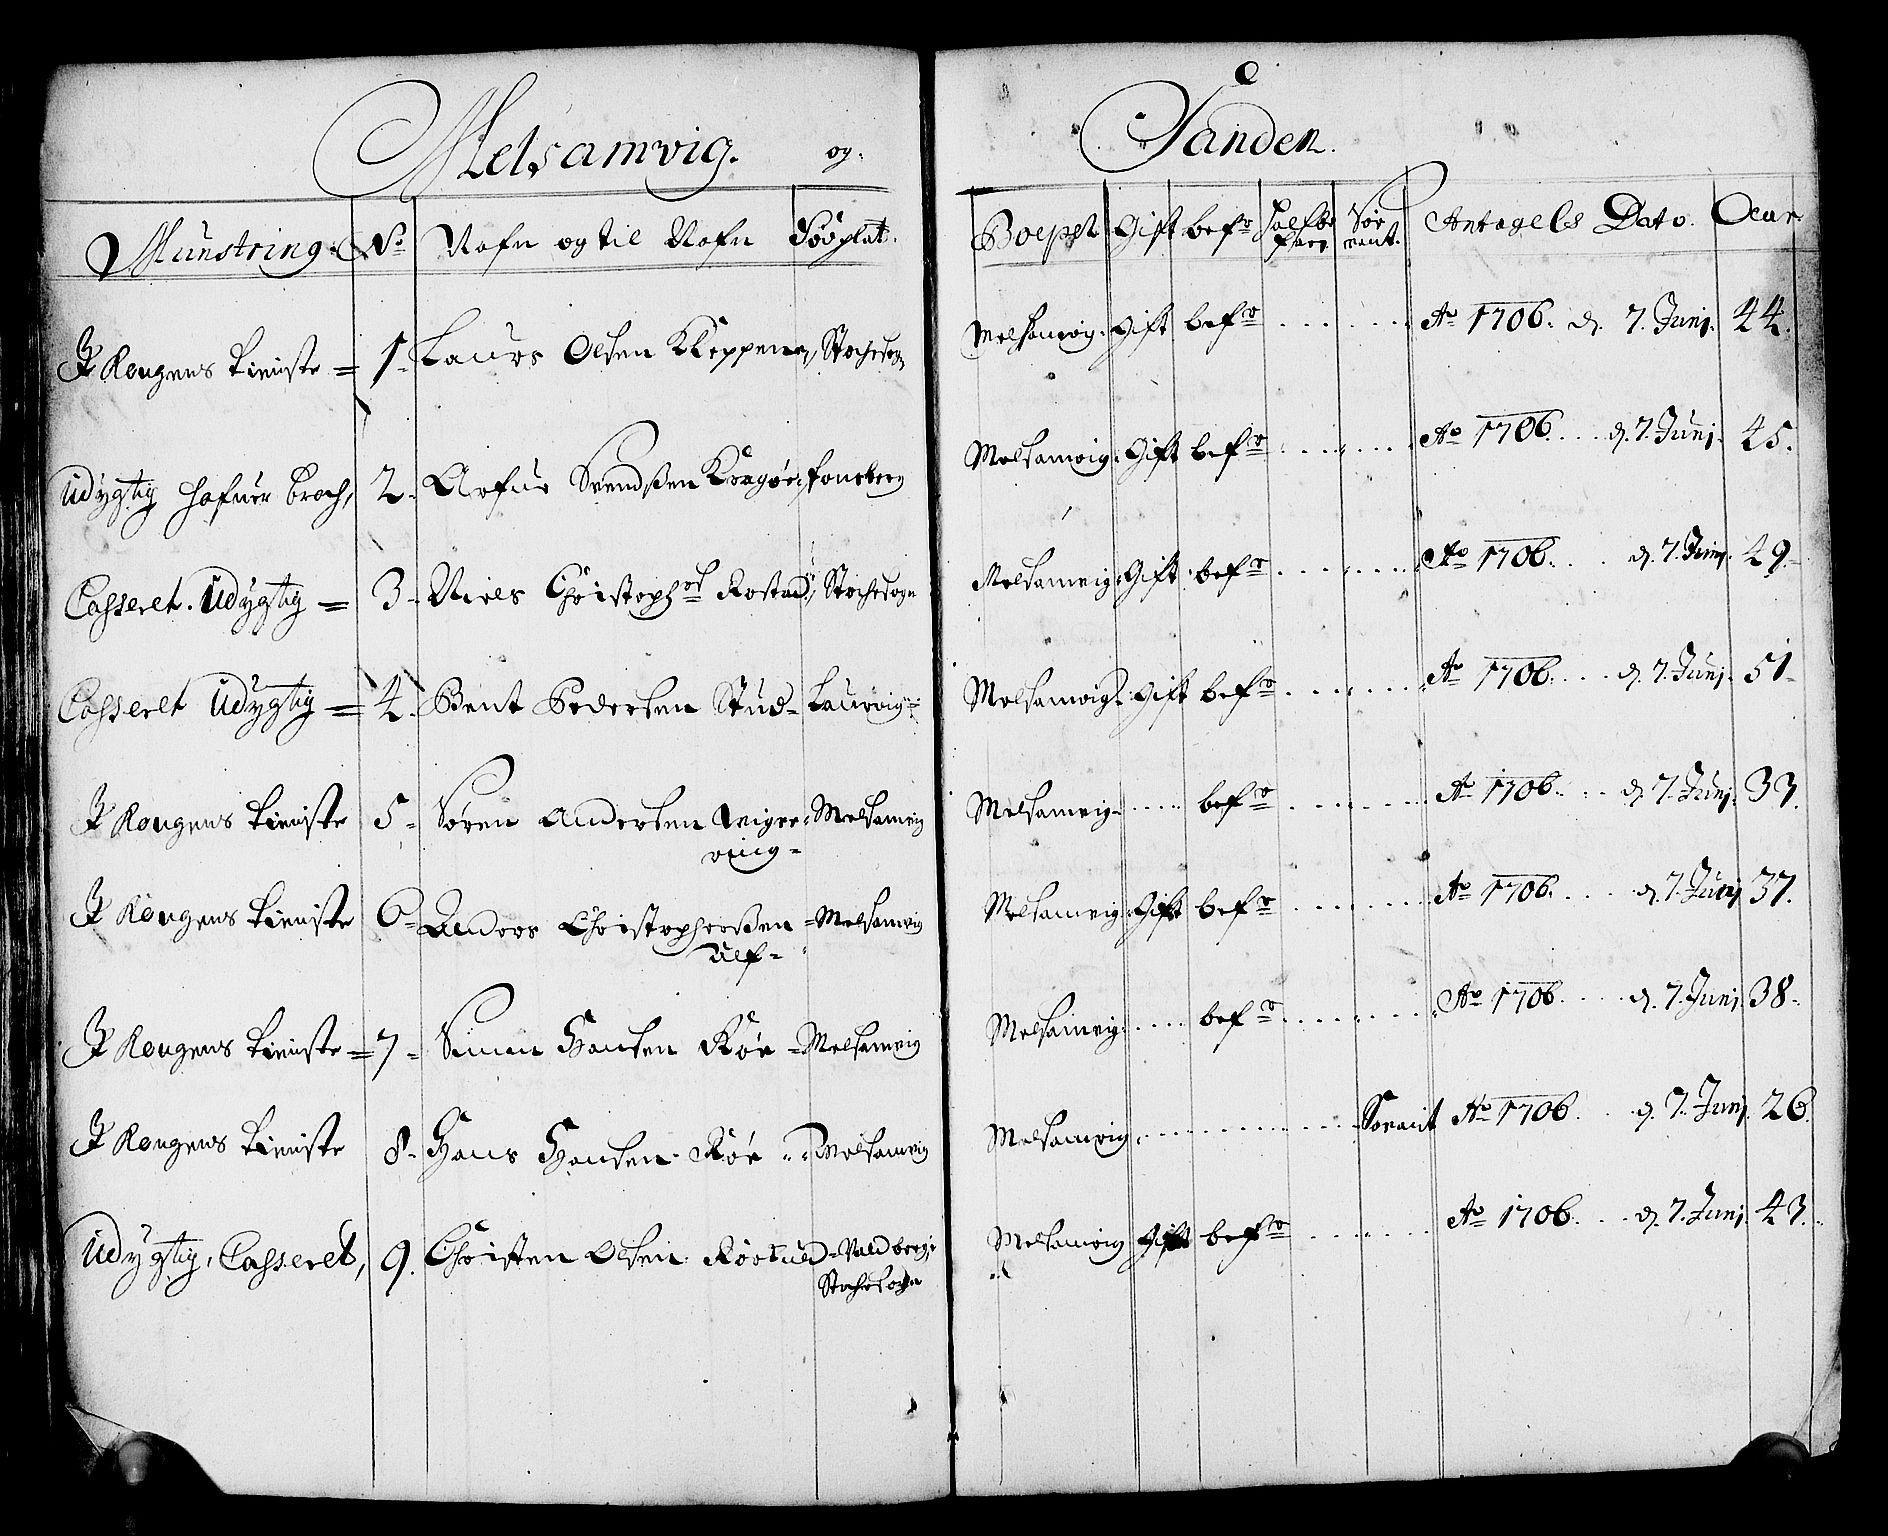 Melsamvig. og. Sanden.
Munstring. No Nafn og til Nafn Fööplats. Boepel Gift befr Halfbefr Serv. Antagels Dato. Aar
J Kongens Tieniste = 1. Laurs Olsen Kleppen, Stochesogn Melsamvig. Gift befr ...... Ao 1706. d. 7. Junj. 44.
Udygtig hafuer broch, 2. Arfue Svendsen Tonsberg Melsamvig. Gift befr ...... Ao 1706. ... d. 7. Junj. 45.
Casseret. Udygtig = 3. Niels Christophers Rostad, Stochesogn Melsamvig. Gift befr ...... Ao 1706. ... d. 7. Junj. 49.
Casseret Udygtig = 4. Bent Pedersen Stud Laurvig Melsamvig. Gift befr ...... Ao 1706. ... d. 7. Junj. 51
J Kongens Tieniste 5. Sören Andersen = Melsamvig Melsamvig ..... befr ...... Ao 1706. ... d. 7. Junj. 33.
J Kongens Tieniste 6. Anders Christophersen = Melsamvig Melsamvig. Gift befr ...... Ao 1706. ... d. 7. Junj 37.
Ulf =
J Kongens Tieniste = 7. Simen Hansen Röe = Melsamvig Melsamvig ..... befr ...... Ao 1706. ... d. 7. Junj. 38.
J Kongens Tieniste 8. Hans Hansen Röe Melsamvig Melsamvig. ........... Servant Ao 1706. ... d. 7. Junj. 26.
Udygtig, Casseret, 9. Christen Olsen Rörstad = Valdberg Melsamvig Gift befr ...... Ao 1706. ... d. 7. Junj. 43.
Stochesogn